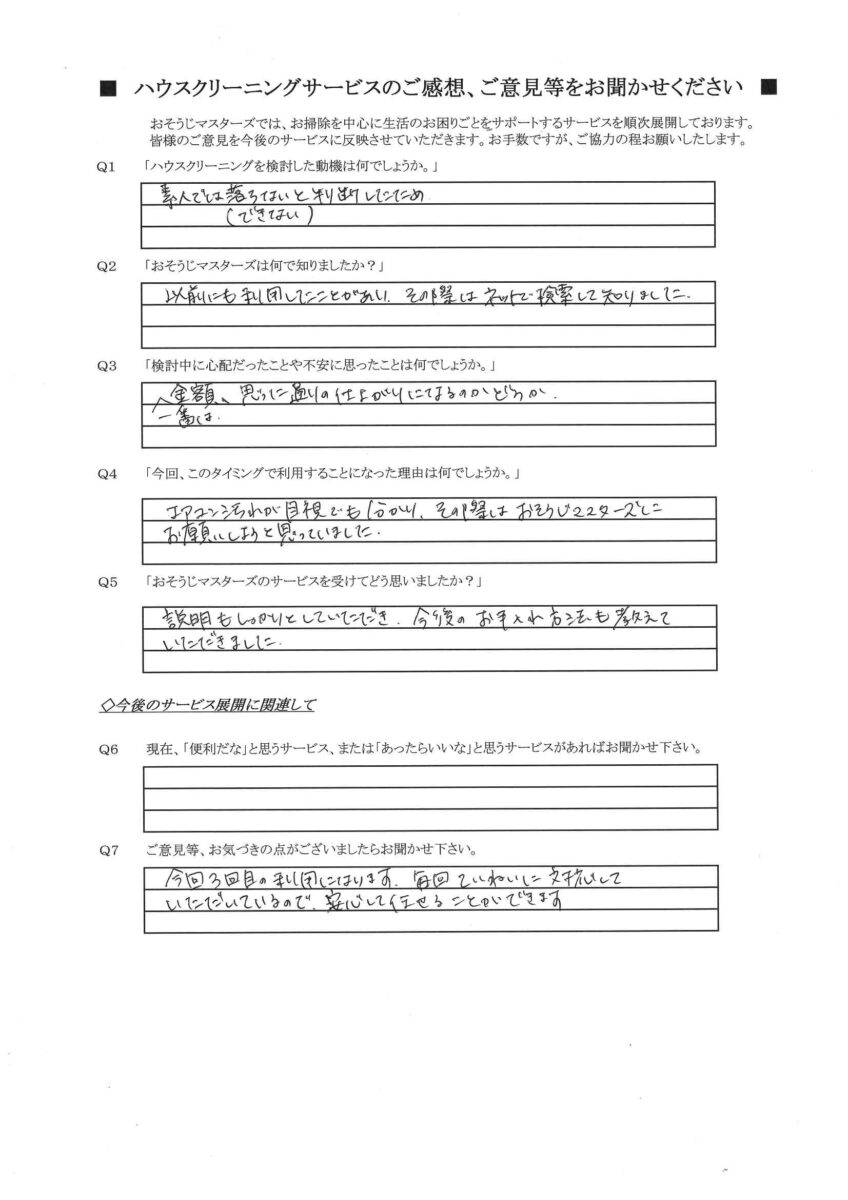 ■ ハウスクリーニングサービスのご感想、ご意見等をお聞かせください ■
おそうじマスターズでは、お掃除を中心に生活のお困りごとをサポートするサービスを順次展開しております。
皆様のご意見を今後のサービスに反映させていただきます。お手数ですが、ご協力の程お願いいたします。
Q1 「ハウスクリーニングを検討した動機は何でしょうか。」
素人では落ちないと判断したため
(できない)
Q2 「おそうじマスターズは何で知りましたか？」
以前にも利用したことがあり、その際はネットで検索して知りました。
Q3 「検討中に心配だったことや不安に思ったことは何でしょうか。」
金額、思った通りの仕上がりになるのかどうか。
一番は、
Q4 「今回、このタイミングで利用することになった理由は何でしょうか。」
エアコン汚れが目視でも分かり、その際はおそうじマスターズに
お願いしようと思っていました。
Q5 「おそうじマスターズのサービスを受けてどう思いましたか？」
説明もしっかりとしていただき、今後のお手入れ方法も教えて
いただきました。
◇今後のサービス展開に関連して
Q6 現在、「便利だな」と思うサービス、または「あったらいいな」と思うサービスがあればお聞かせ下さい。
Q7 ご意見等、お気づきの点がございましたらお聞かせ下さい。
今回3回目の利用になります。毎回ていねいに対応して
いただいているので、安心して任せることができます